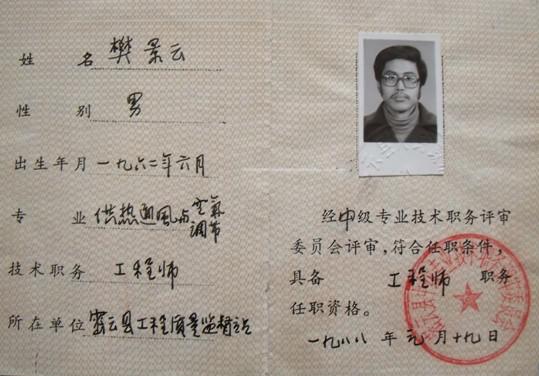 姓 名 樊景云
性 别 男
出生年月 一九六二年六月
专 业 供热通风与空气调节
技术职务 工程师
所在单位 密云县工程质量监督站
经中级专业技术职务评审
委员会评审，符合任职条件，
具备 工程师 职务
任职资格。
一九八八 年 元 月 十九 日